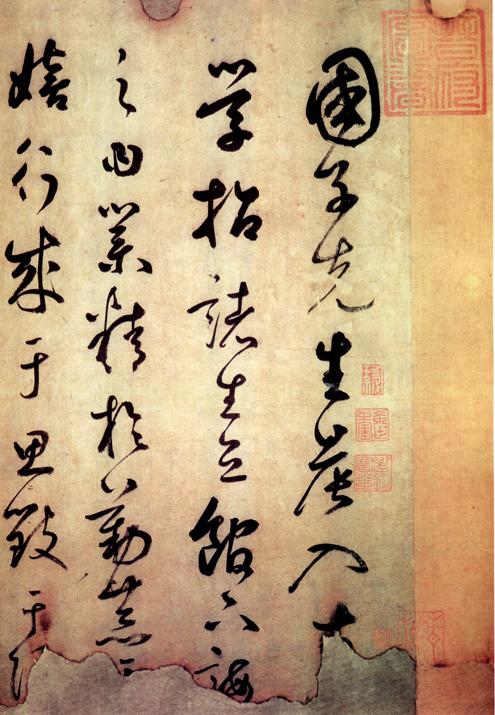 國子先生晨入太
學招諸生立館下誨
之曰業精於勤荒于
嬉行成于思毀于